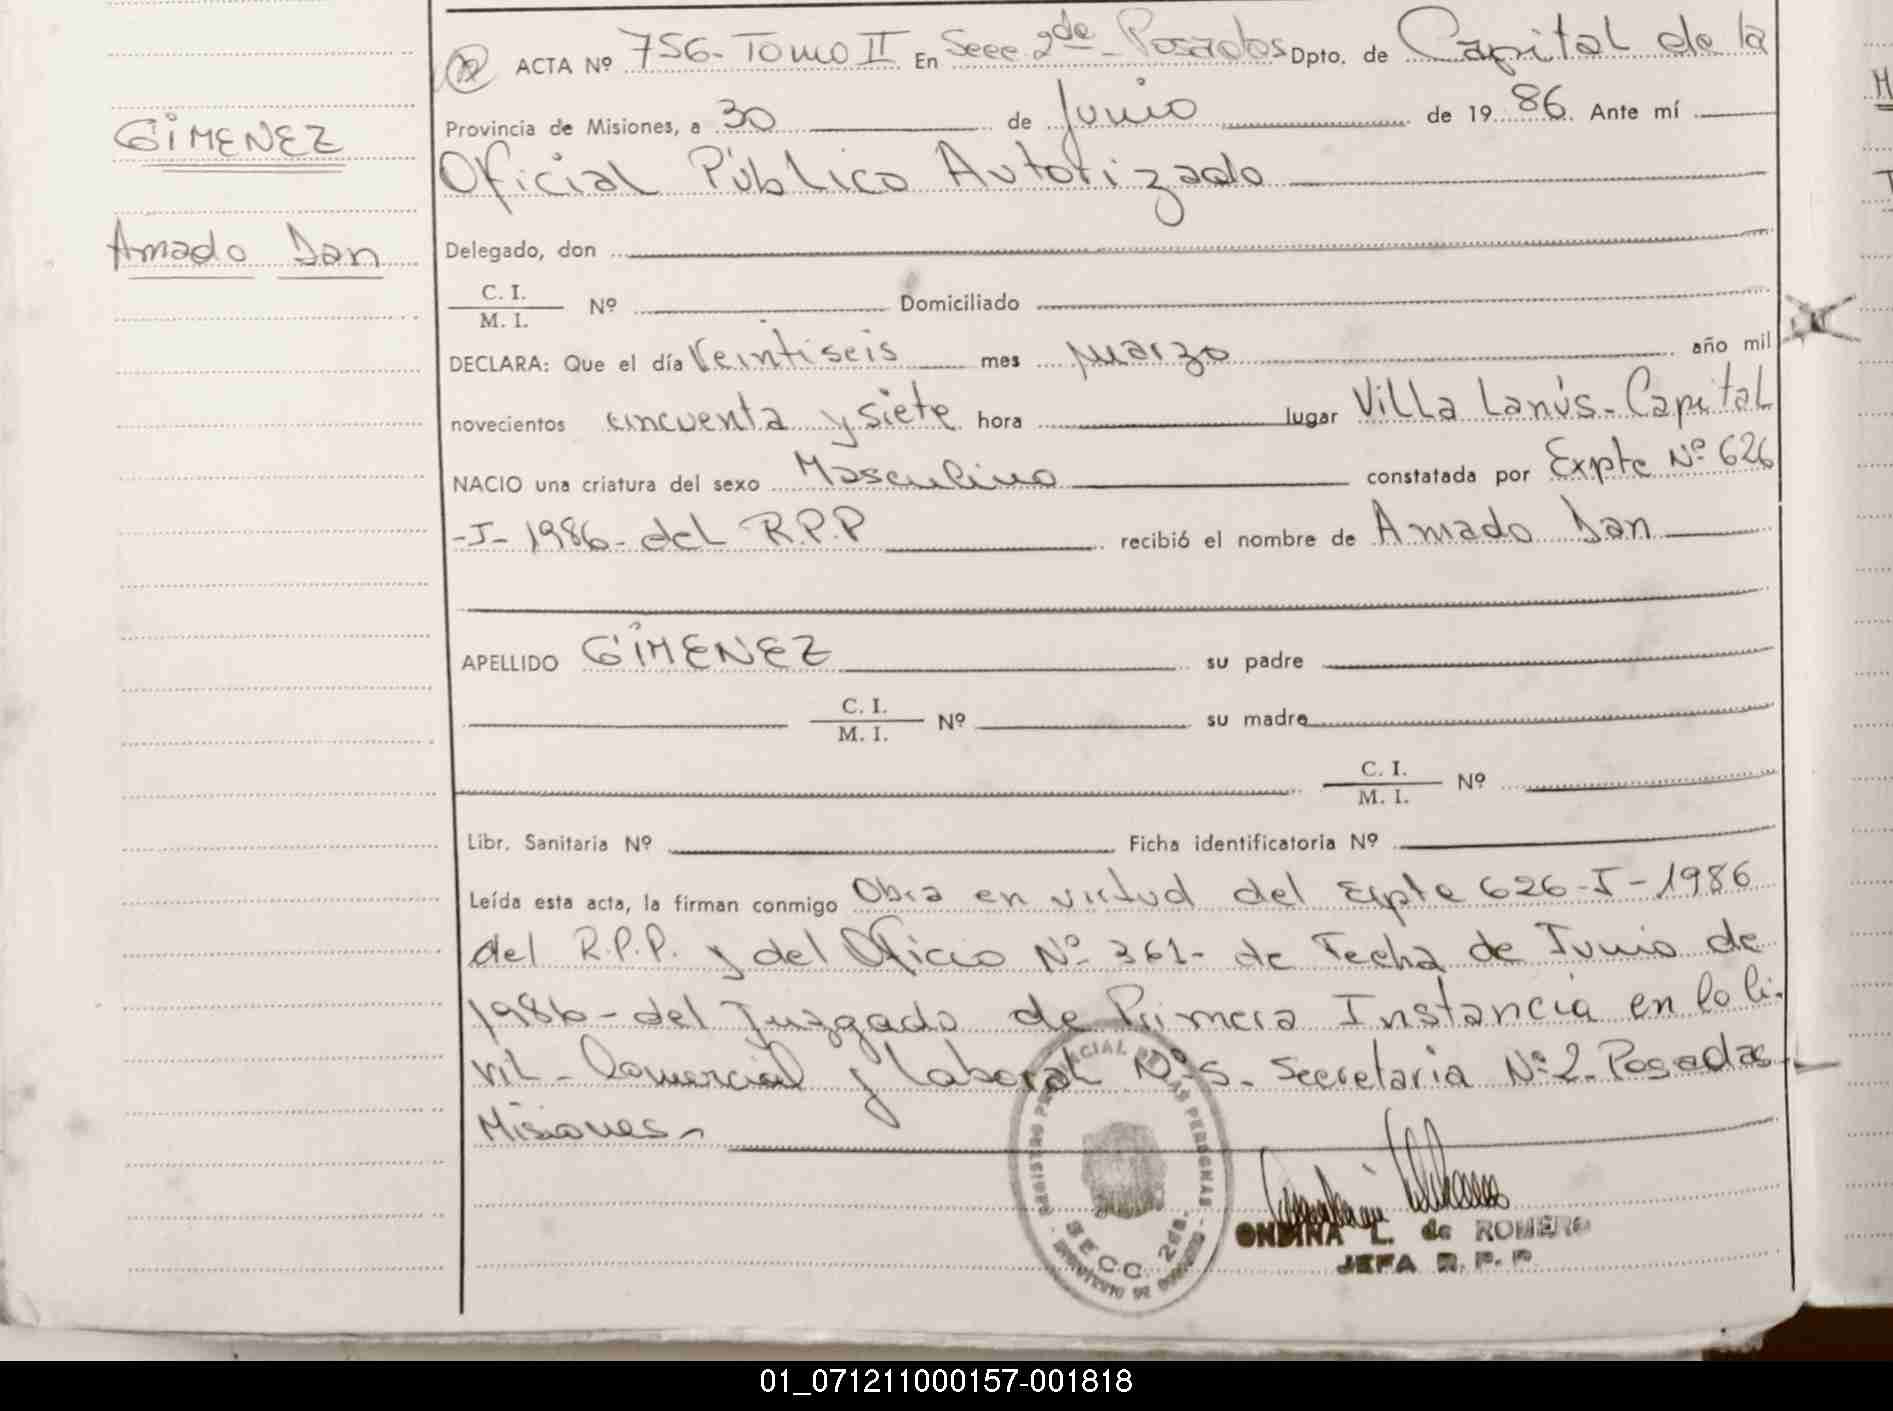 ACTA Nº 756- Tomo II En Secc 2da - Posadas Dpto. de Capital de la
GIMENEZ
Provincia de Misiones, a 30 de Junio de 19 86. Ante mí
Oficial Público Autorizado
Amado Dan
Delegado, don
C. I.
M. I. Nº Domiciliado
DECLARA: Que el día Veintiseis mes Marzo año mil
novecientos cincuenta y siete hora lugar Villa Lanús - Capital
NACIO una criatura del sexo Masculino constatada por Expte Nº 626
-I- 1986- del R.P.P recibió el nombre de Amado Dan
APELLIDO GIMENEZ su padre
C. I.
M. I. Nº su madre
C. I.
M. I. Nº
Libr. Sanitaria Nº Ficha identificatoria Nº
Leída esta acta, la firman conmigo Obra en virtud del Expte 626-I-1986
del R.P.P. y del Oficio Nº 361- de Fecha de Junio de
1986- del Juzgado de Primera Instancia en lo Ci-
vil - Comercial y Laboral Nº 5. Secretaria Nº 2 - Posadas
Misiones -
REGISTRO PROVINCIAL DE LAS PERSONAS
SECC. 2da.
ONDINA L. de ROMERO
JEFA R. P. P.
01_071211000157-001818